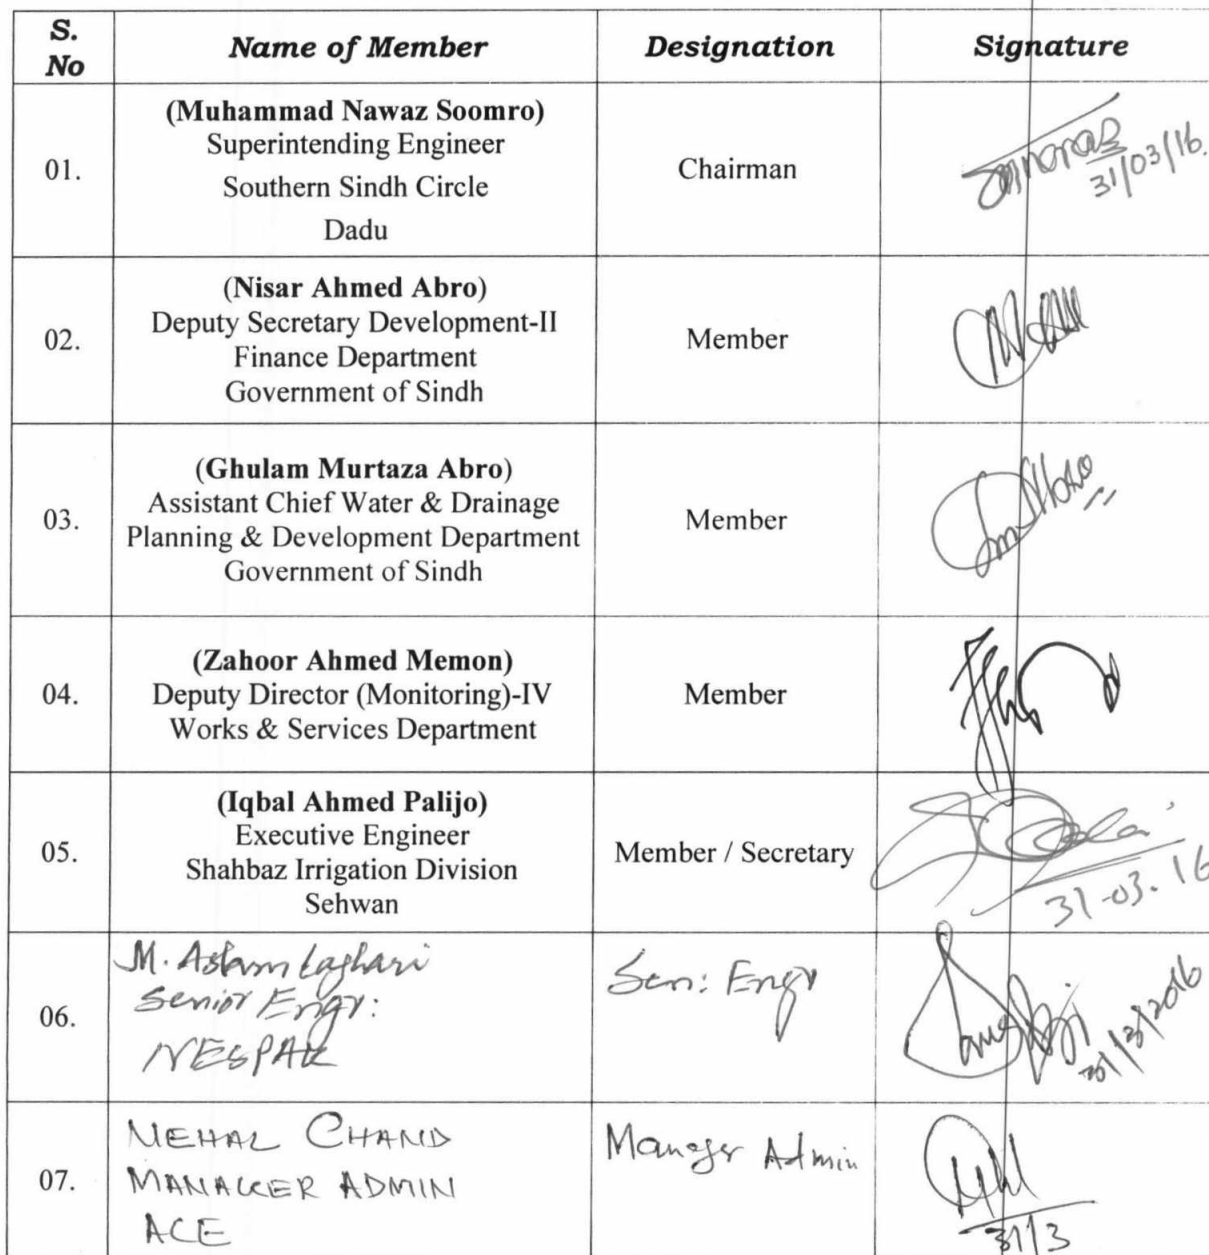 S. No Name of Member Designation Signature
01. (Muhammad Nawaz Soomro) Superintending Engineer Southern Sindh Circle Dadu Chairman 31/03/16.
02. (Nisar Ahmed Abro) Deputy Secretary Development-II Finance Department Government of Sindh Member
03. (Ghulam Murtaza Abro) Assistant Chief Water & Drainage Planning & Development Department Government of Sindh Member
04. (Zahoor Ahmed Memon) Deputy Director (Monitoring)-IV Works & Services Department Member
05. (Iqbal Ahmed Palijo) Executive Engineer Shahbaz Irrigation Division Sehwan Member / Secretary 31-03-16
06. M. Aslam Laghari Senior Engr: NESPAK Sen: Engr 31/3/2016
07. NEHAL CHAND MANAGER ADMIN ACE Manager Admin 31/3